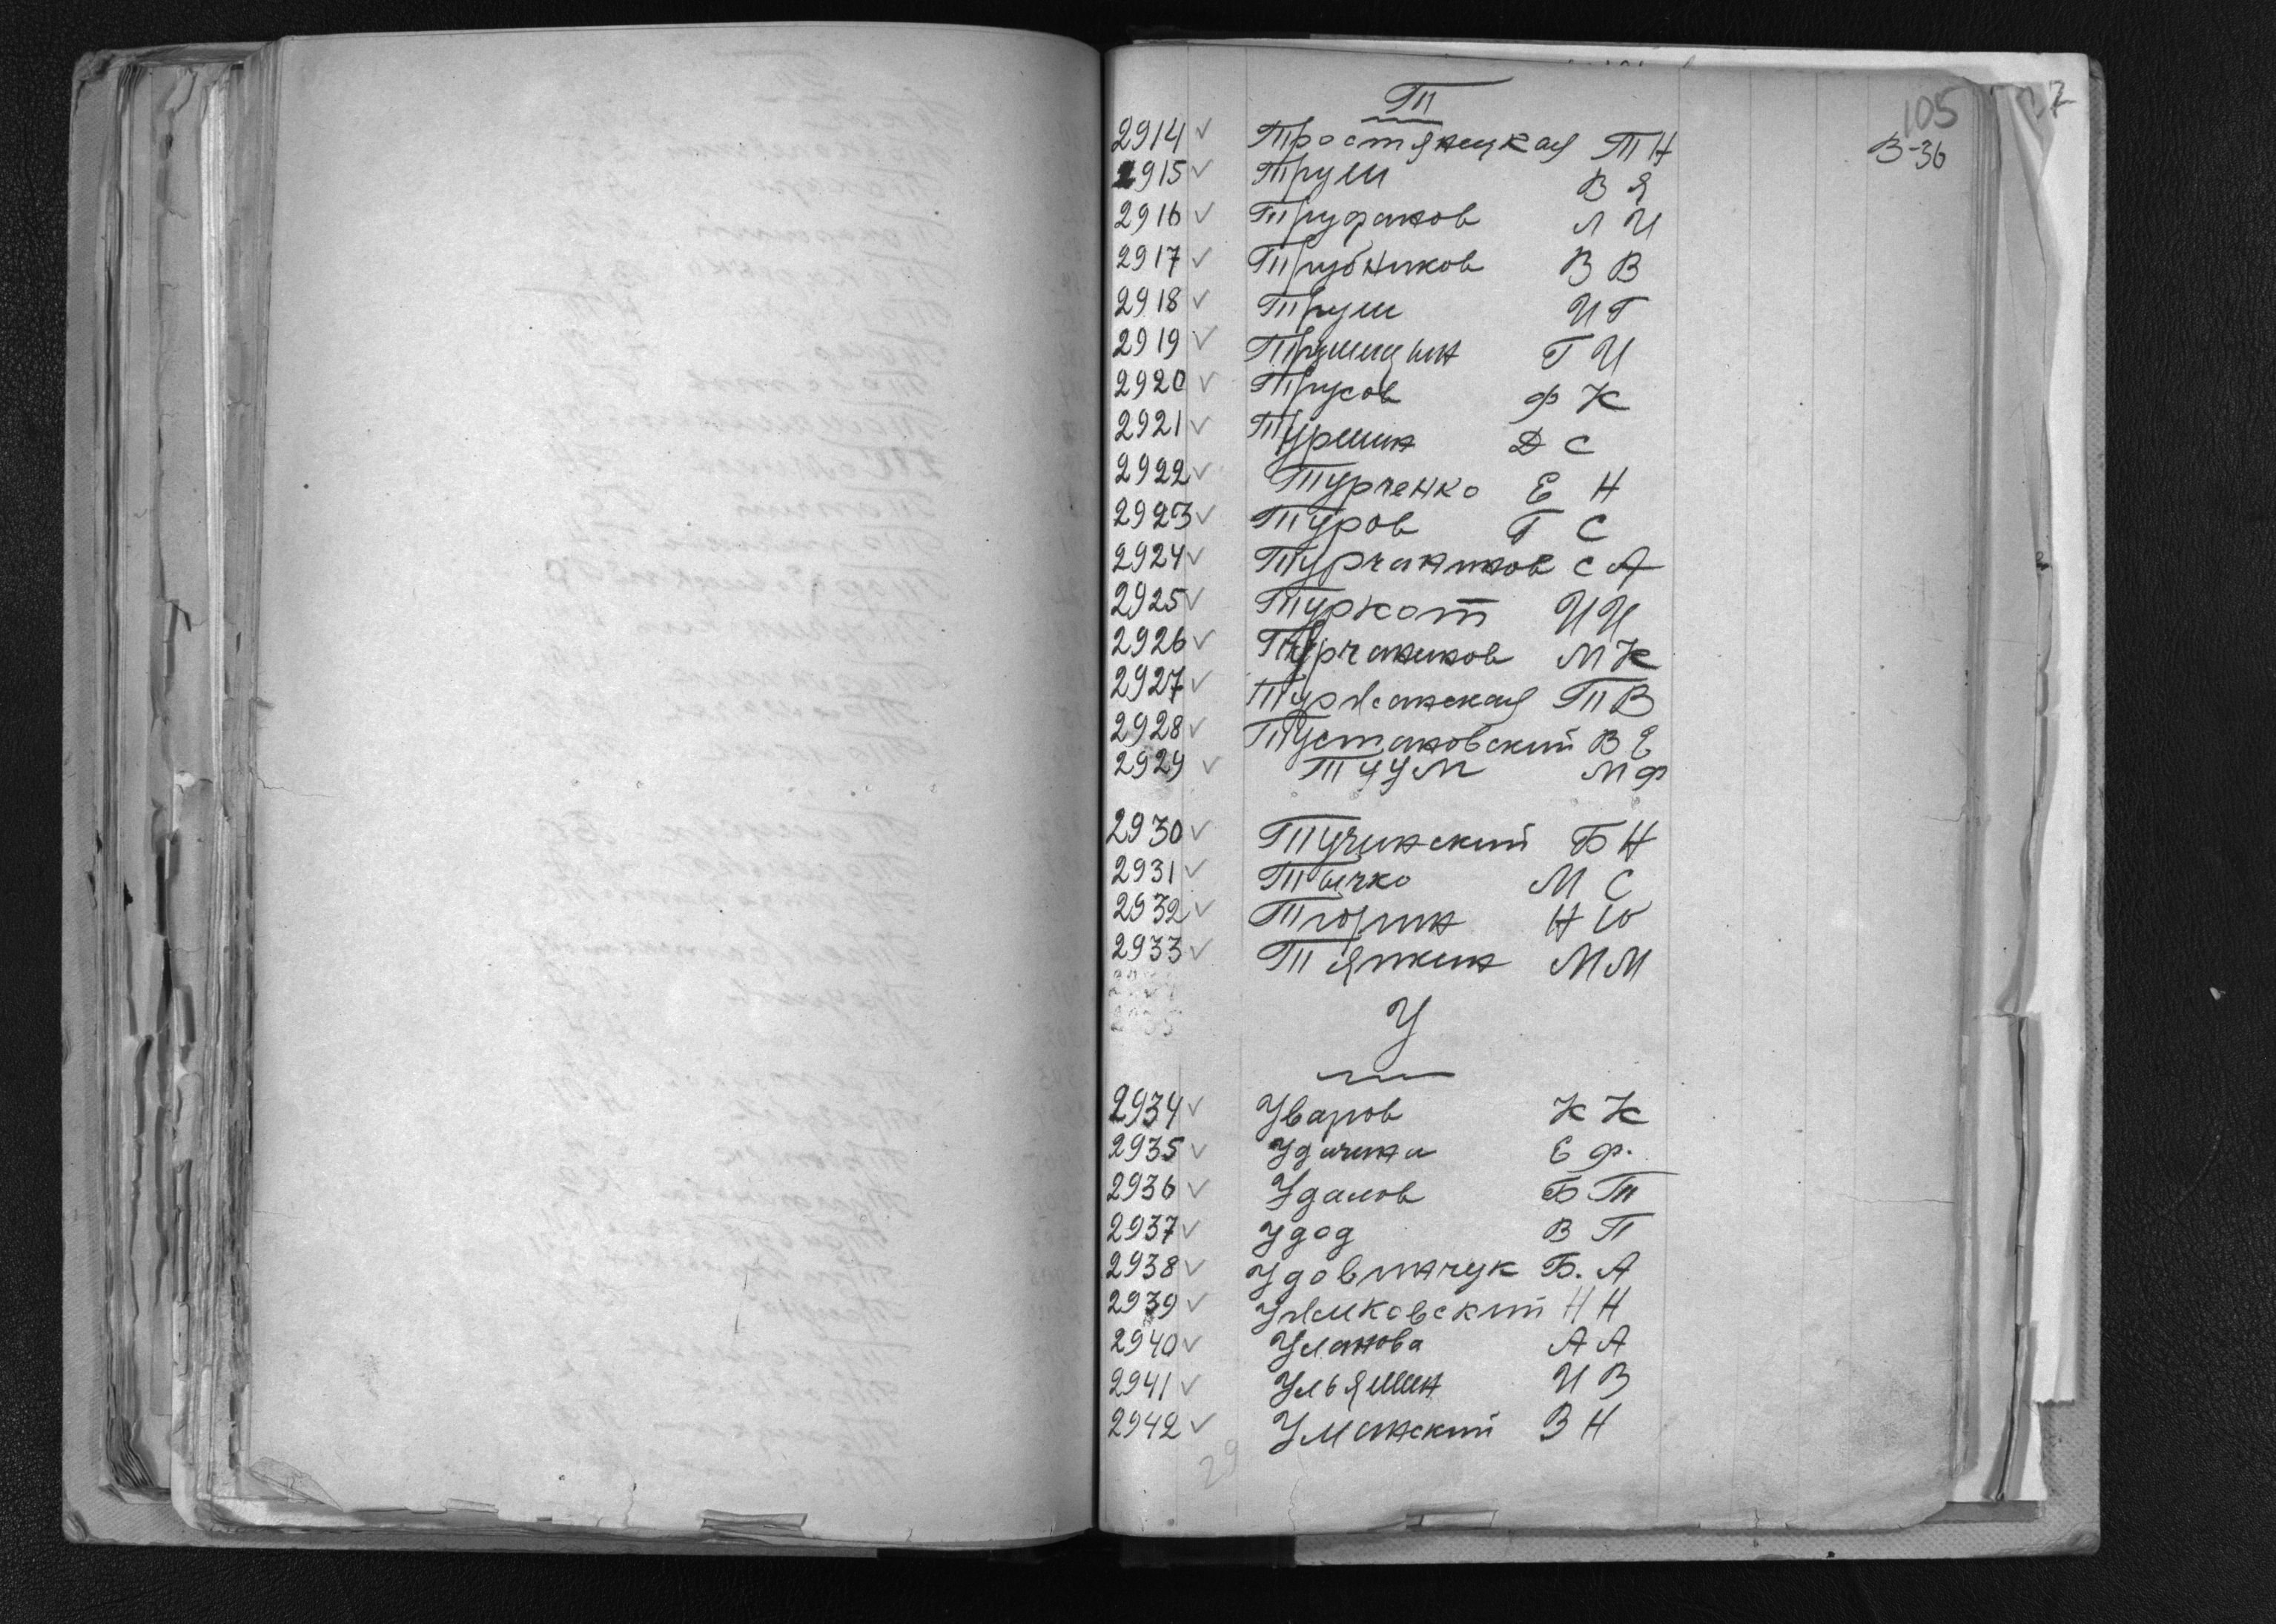 105
Т
2914 ✓ Тростянецкая Т Н В-36
2915 ✓ Труш В Я
2916 ✓ Труфанов Л И
2917 ✓ Трубников В В
2918 ✓ Труш И Г
2919 ✓ Трушицын Г И
2920 ✓ Трусов Ф К
2921 ✓ Туршин Д С
2922 ✓ Турченко Е Н
2923 ✓ Туров Г С
2924 ✓ Турчанинов С А
2925 ✓ Туркот И И
2926 ✓ Турчанинов М К
2927 ✓ Туржанская Т В
2928 ✓ Тустановский В Е
2929 ✓ М Ф
2930 ✓ Тучинский Б Н
2931 ✓ Тычко М С
2932 ✓ Тюрин Н Ю
2933 ✓ Тяпкин М М
У
2934 ✓ Уваров К К
2935 ✓ Е Ф.
2936 ✓ Удалов Б Т
2937 ✓ Удод В П
2938 ✓ Удовиچук Б. А
2939 ✓ Ужиковский Н Н
2940 ✓ Уланова А А
2941 ✓ Ульяшин И В
2942 ✓ Уманский В Н
29